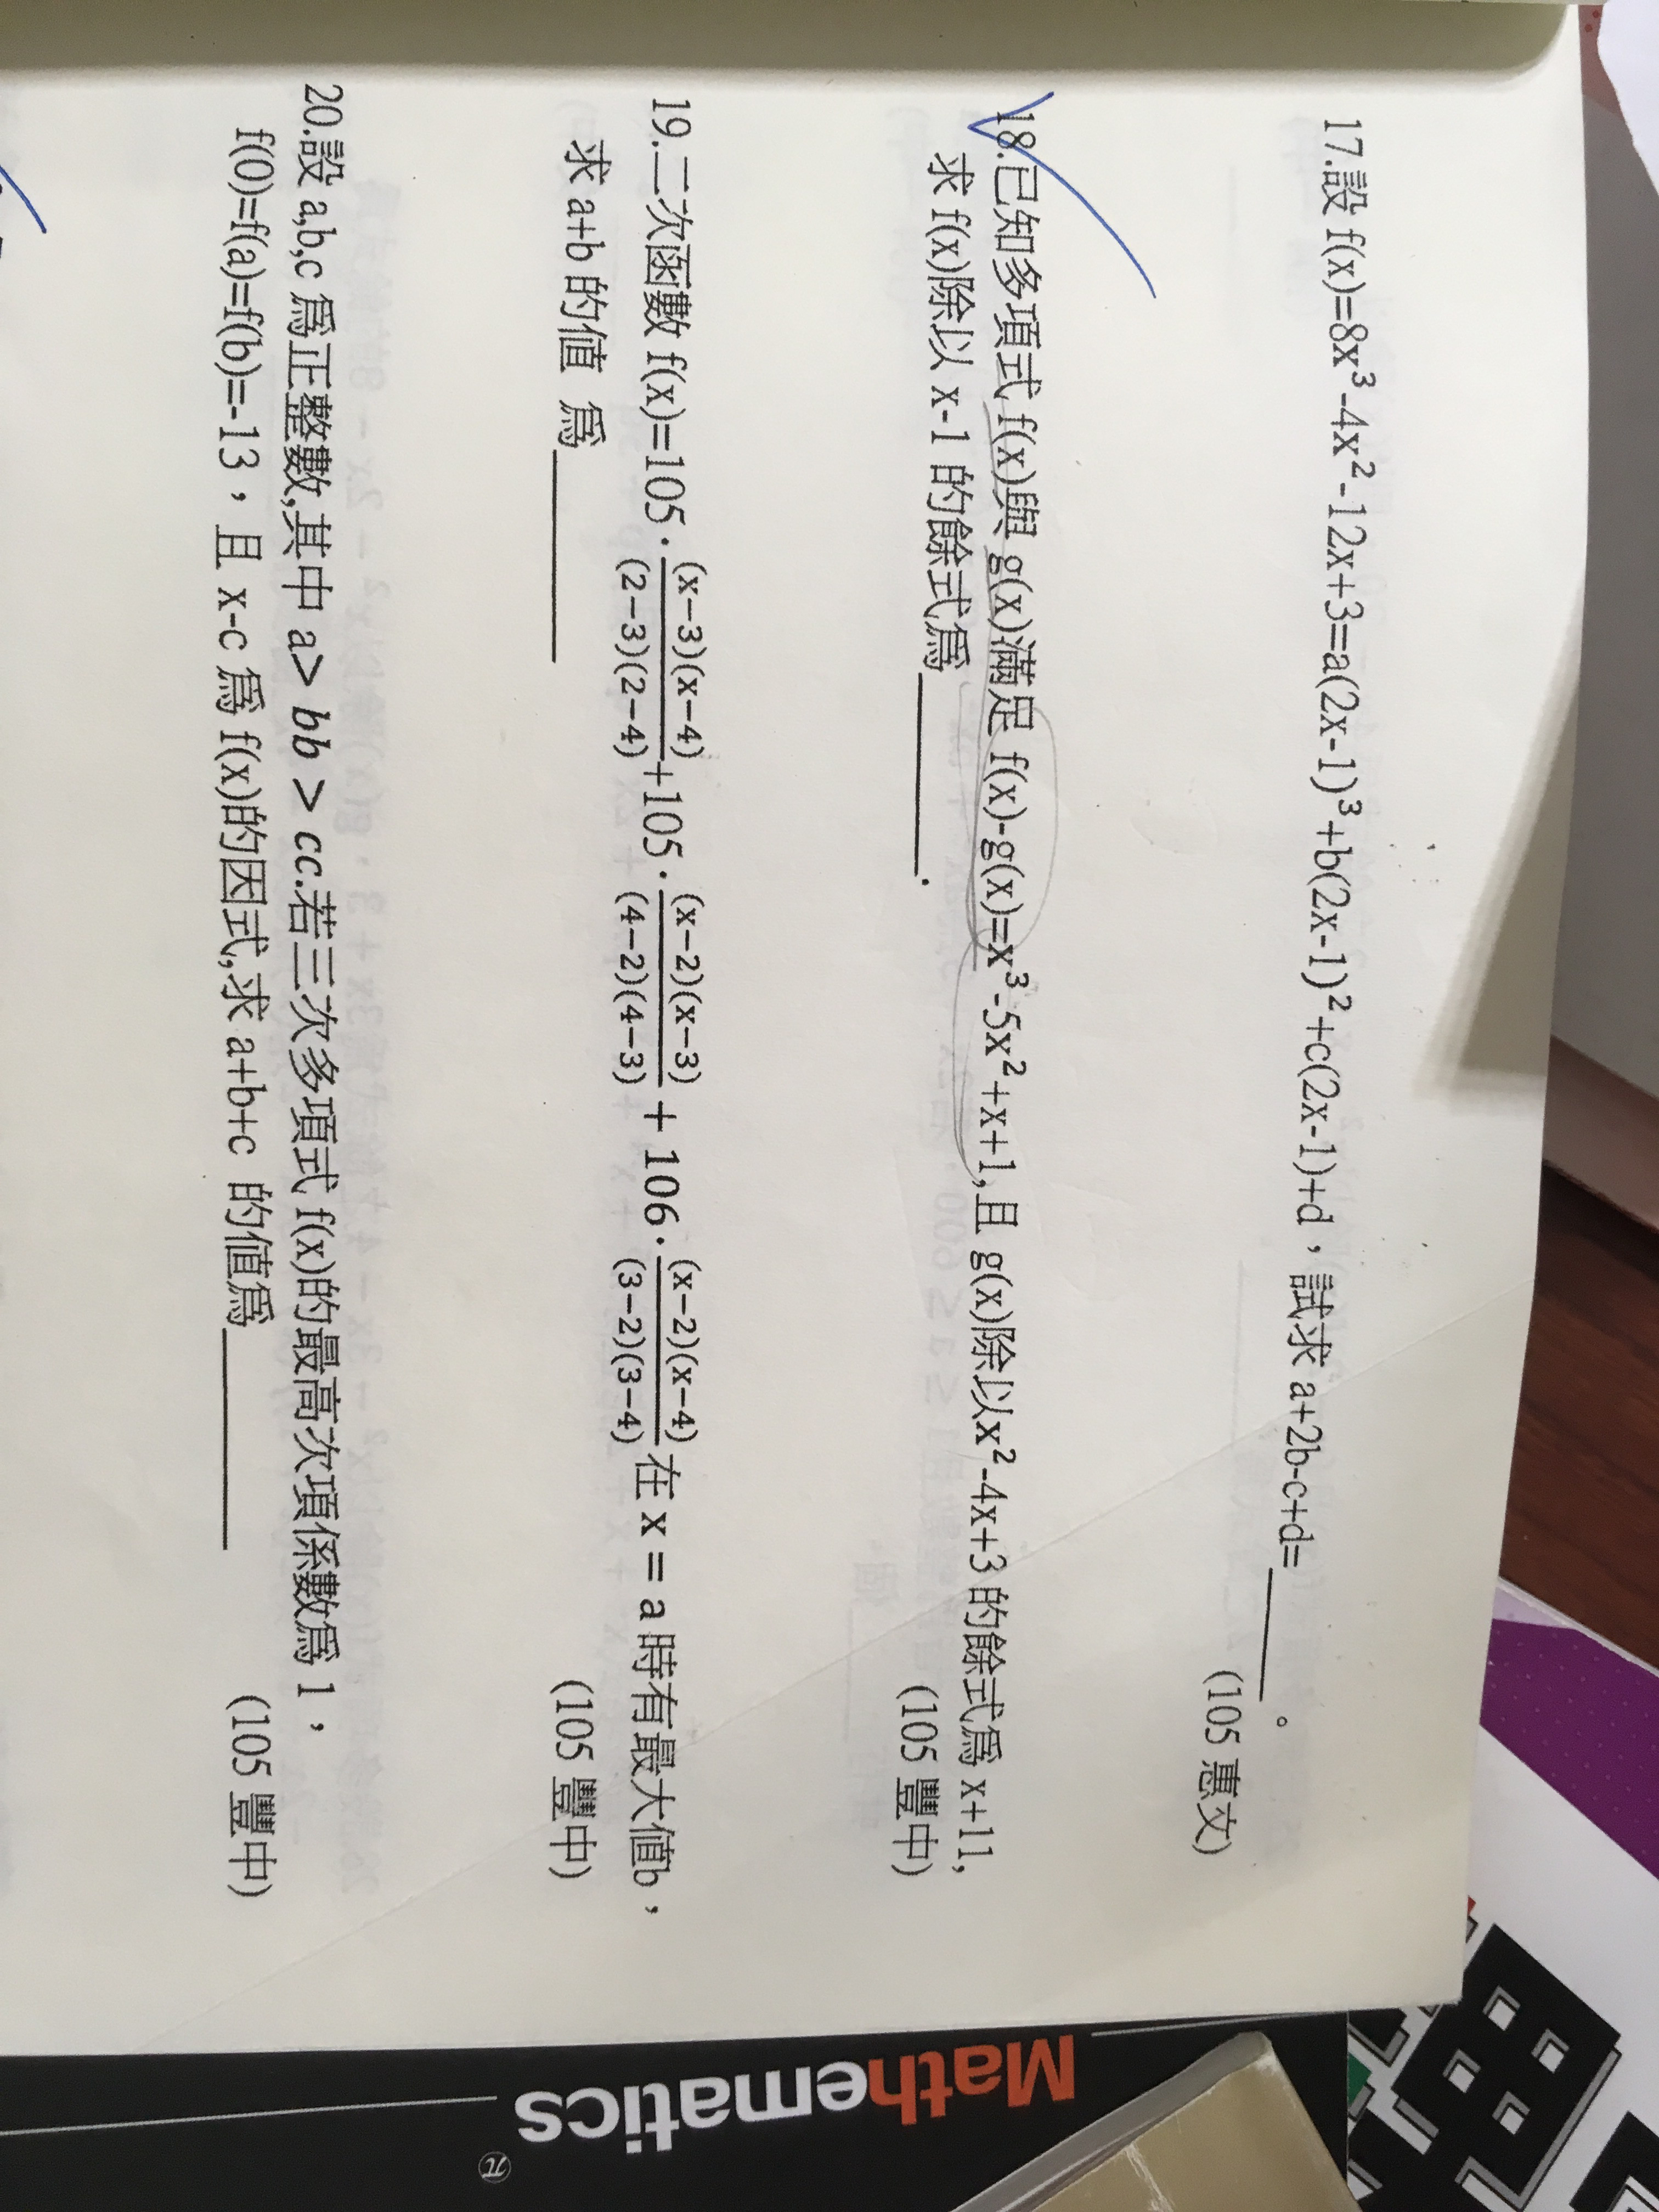 17.設 f(x)=8x³-4x²-12x+3=a(2x-1)³+b(2x-1)²+c(2x-1)+d，試求 a+2b-c+d=______。
(105 惠文)
18.已知多項式 f(x)與 g(x)滿足 f(x)-g(x)=x³-5x²+x+1,且 g(x)除以x²-4x+3 的餘式為 x+11,
求 f(x)除以 x-1 的餘式為________.
(105 豐中)
19.二次函數 f(x)=105·(x−3)(x−4)/(2−3)(2−4)+105·(x−2)(x−3)/(4−2)(4−3)+106·(x−2)(x−4)/(3−2)(3−4)在 x = a 時有最大值b，
求 a+b 的值 為________
(105 豐中)
20.設 a,b,c 為正整數,其中 a> bb > cc.若三次多項式 f(x)的最高次項係數為 1，
f(0)=f(a)=f(b)=-13，且 x-c 為 f(x)的因式,求 a+b+c 的值為________
(105 豐中)
Mathematics
π